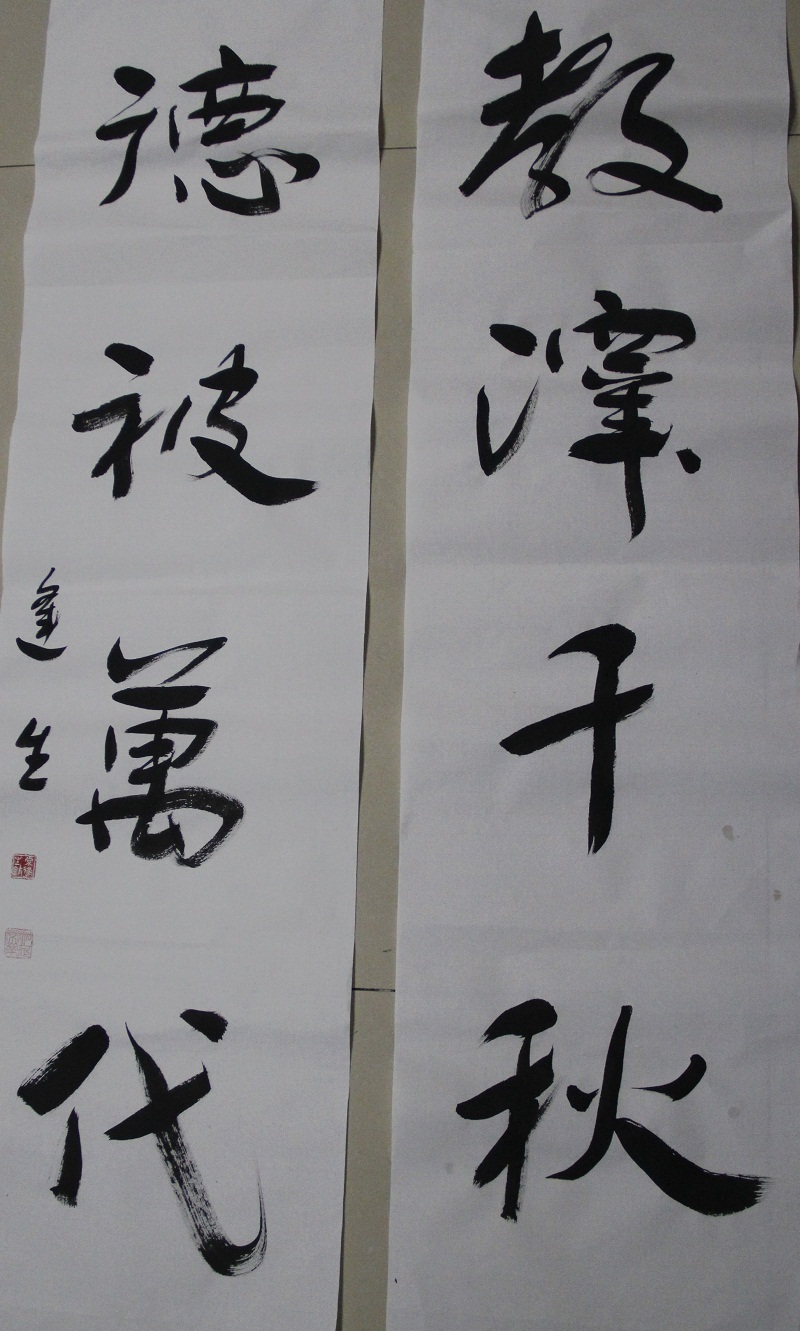 教澤千秋
德被萬代
逢生